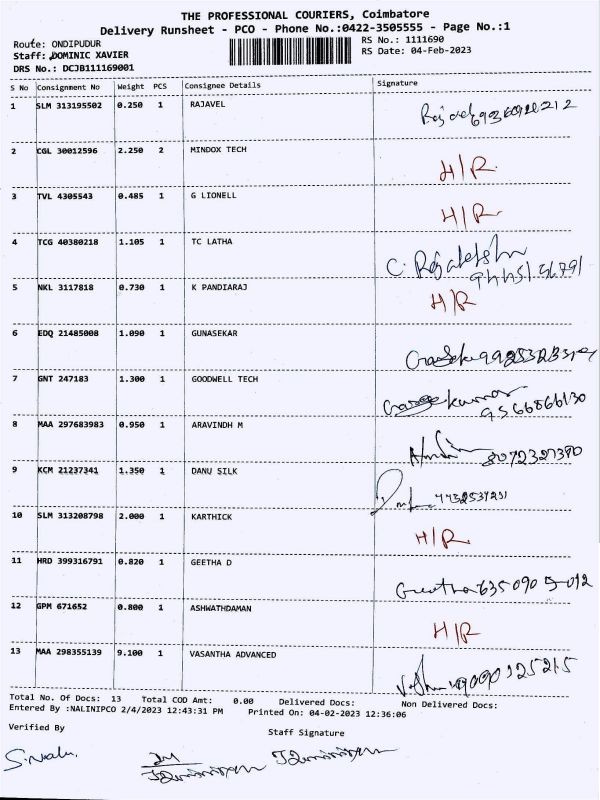 THE PROFESSIONAL COURIERS, Coimbatore
Delivery Runsheet - PCO - Phone No.:0422-3505555 - Page No.:1
Route: ONDIPUDUR
RS No.: 1111690
Staff: DOMINIC XAVIER
RS Date: 04-Feb-2023
DRS No.: DCJB111169001
S No Consignment No Weight PCS Consignee Details Signature
1 SLM 313195502 0.250 1 RAJAVEL
2 CGL 30012596 2.250 2 MINDOX TECH H/R
3 TVL 4305543 0.485 1 G LIONELL H/R
4 TCG 40380218 1.105 1 TC LATHA
5 NKL 3117818 0.730 1 K PANDIARAJ H/R
6 EDQ 21485008 1.090 1 GUNASEKAR
7 GNT 247183 1.300 1 GOODWELL TECH
9566866130
8 MAA 297683983 0.950 1 ARAVINDH M 8072327380
9 KCM 21237341 1.350 1 DANU SILK
10 SLM 313208798 2.000 1 KARTHICK H/R
11 HRD 399316791 0.820 1 GEETHA D Geetha
12 GPM 671652 0.800 1 ASHWATHDAMAN H/R
13 MAA 298355139 9.100 1 VASANTHA ADVANCED
Total No. Of Docs: 13 Total COD Amt: 0.00 Delivered Docs: Non Delivered Docs:
Entered By :NALINIPCO 2/4/2023 12:43:31 PM Printed On: 04-02-2023 12:36:06
Verified By Staff Signature